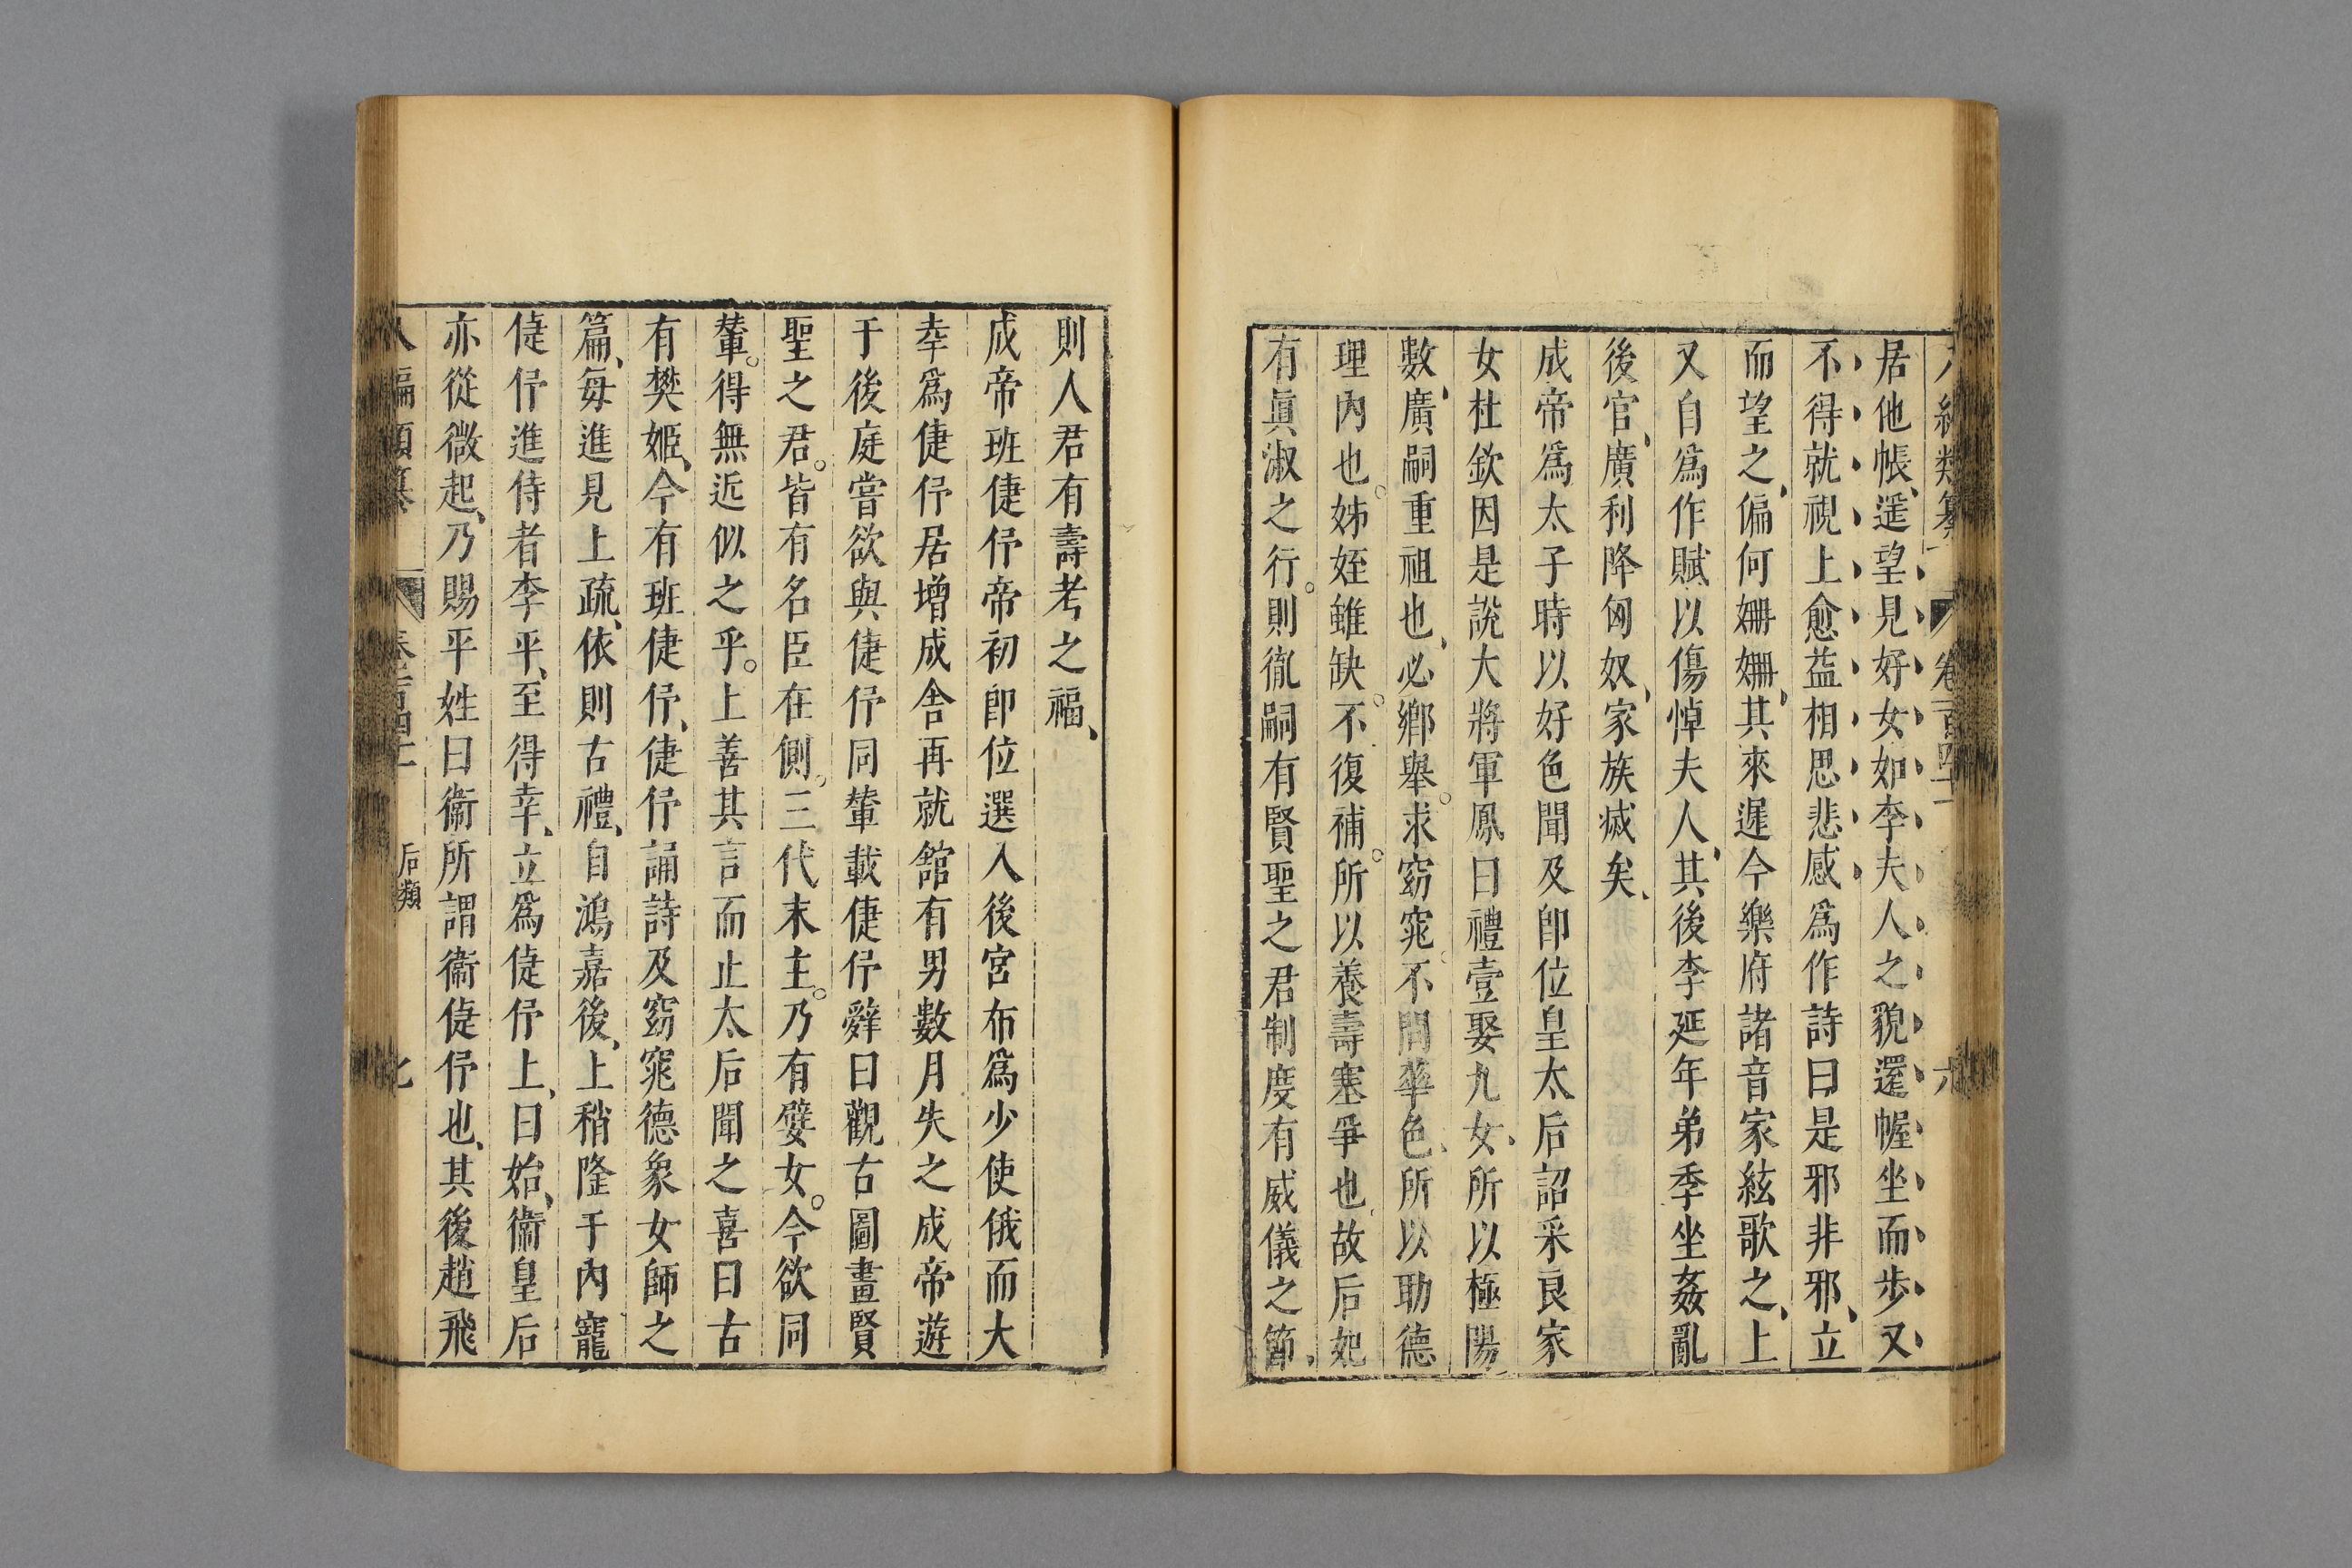 居他帳、遥望見好女如李夫人之貌還幄坐而步又
不得就視上愈益相思悲感爲作詩曰是邪非邪、立
而望之、偏何姍姍、其來遲今樂府諸音家絃歌之、上
又自爲作賦以傷悼夫人、其後李延年弟季坐姦亂
後宫、廣利降匈奴、家族滅矣、
成帝爲太子時以好色聞及卽位皇太后詔采良家
女杜欽因是說大將軍鳳曰禮壹娶九女、所以極陽
數、廣嗣重祖也、必鄕舉。求窈窕。不問華色、所以助德
理內也。姊姪雖缺。不復補。所以養壽塞爭也、故后妃
有眞淑之行。則胤嗣有賢聖之君制度有威儀之節、
則人君有壽考之福、
成帝班倢伃帝初卽位選入後宮布爲少使俄而大
幸爲倢伃居增成舍再就舘有男數月失之成帝遊
于後庭嘗欲與倢伃同輦載倢伃辭曰觀古圖畫賢
聖之君。皆有名臣在側。三代末主。乃有嬖女。今欲同
輦。得無近似之乎。上善其言而止太后聞之喜曰古
有樊姬、今有班倢伃、倢伃誦詩及窈窕德象女師之
篇、每進見上疏、依則古禮、自鴻嘉後、上稍隆于內寵
倢伃進侍者李平、至得幸、立爲倢伃上、曰始、衞皇后
亦從微起、乃賜平姓曰衞所謂衞倢伃也、其後趙飛
后類